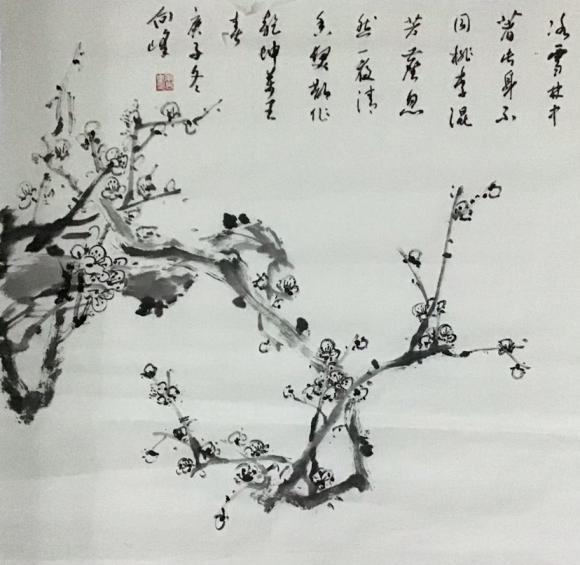 冰雪林中
著此身不
同桃李混
芳塵忽
然一夜清
香發散作
乾坤萬里
春
庚子冬
向峰